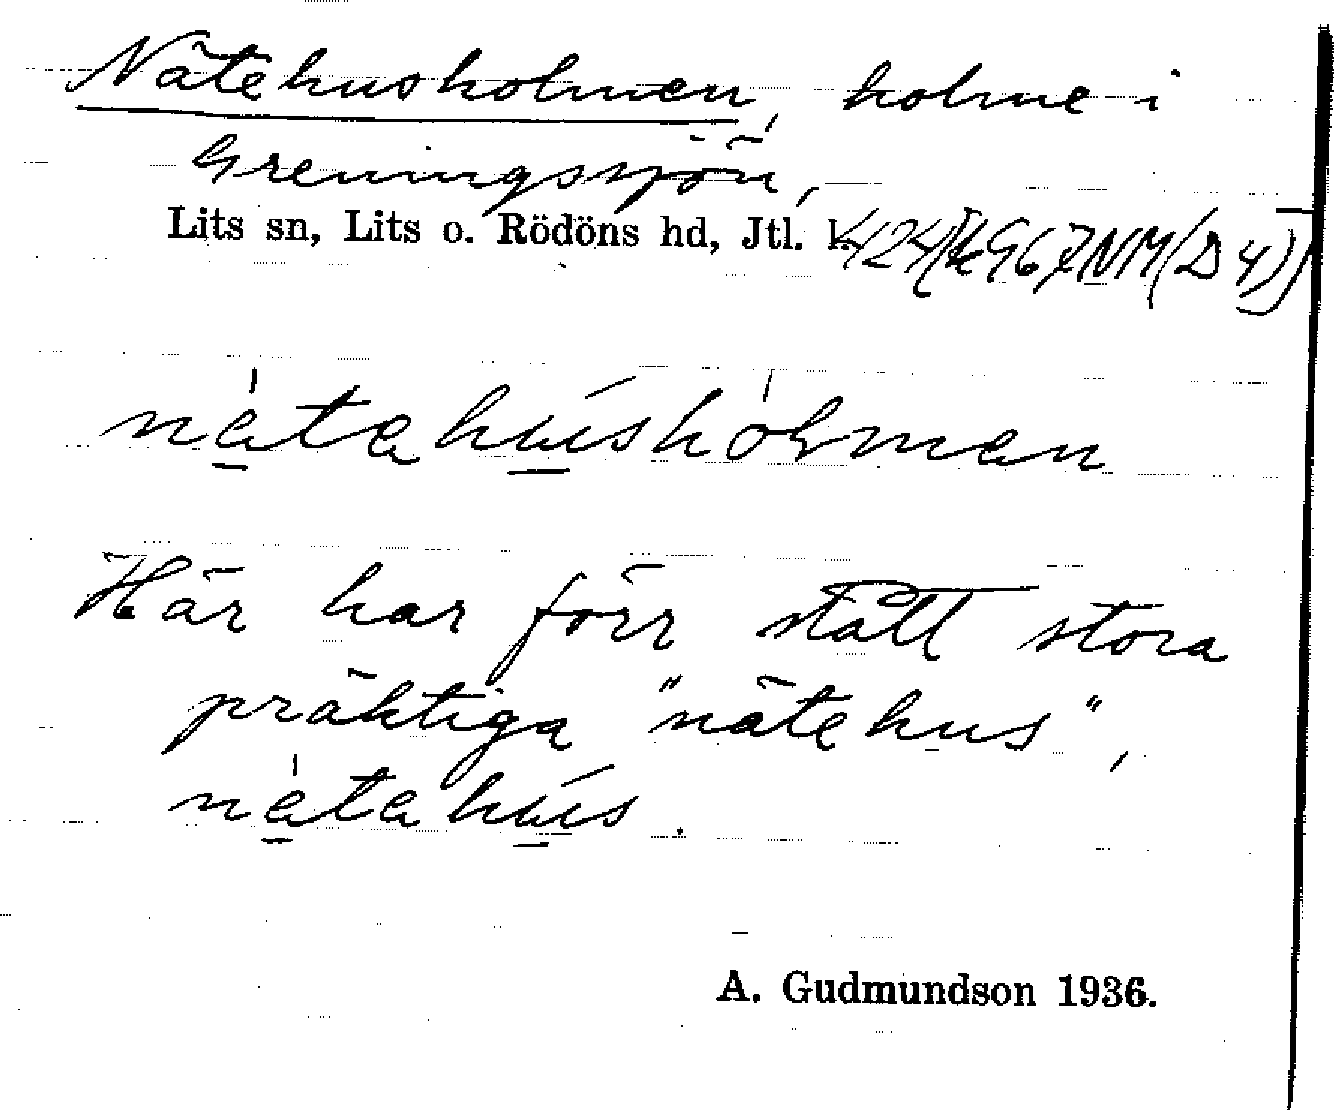 Nätehusholmen, holme i
Greningssjön,
Lits sn, Lits o. Rödöns hd, Jtl. l.
nàtahúshòlman
Här har förr stått stora
präktiga "nätehus",
nàtahús.
A. Gudmundson 1936.